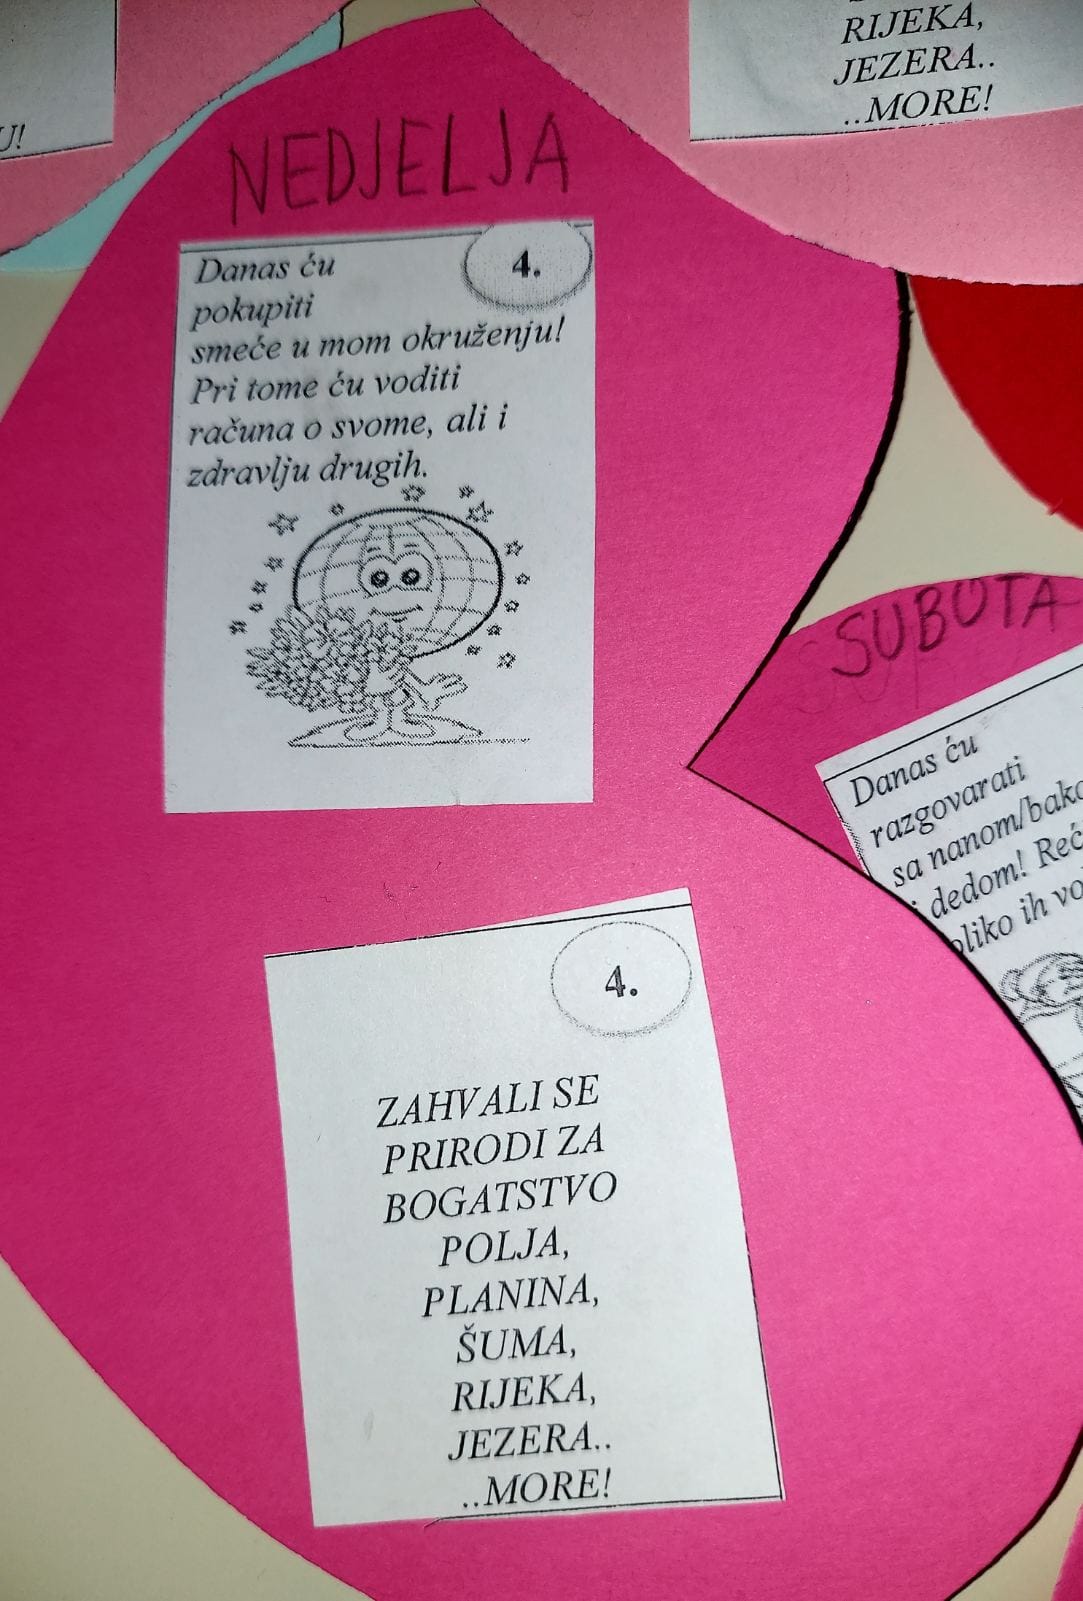 RIJEKA,
JEZERA..
..MORE!
U!
NEDJELJA
4.
Danas ću
pokupiti
smeće u mom okruženju!
Pri tome ću voditi
računa o svome, ali i
zdravlju drugih.
SUBOTA
Danas ću
razgovarati
sa nanom/bako
i dedom! Reć
oliko ih vo
4.
ZAHVALI SE
PRIRODI ZA
BOGATSTVO
POLJA,
PLANINA,
ŠUMA,
RIJEKA,
JEZERA..
..MORE!